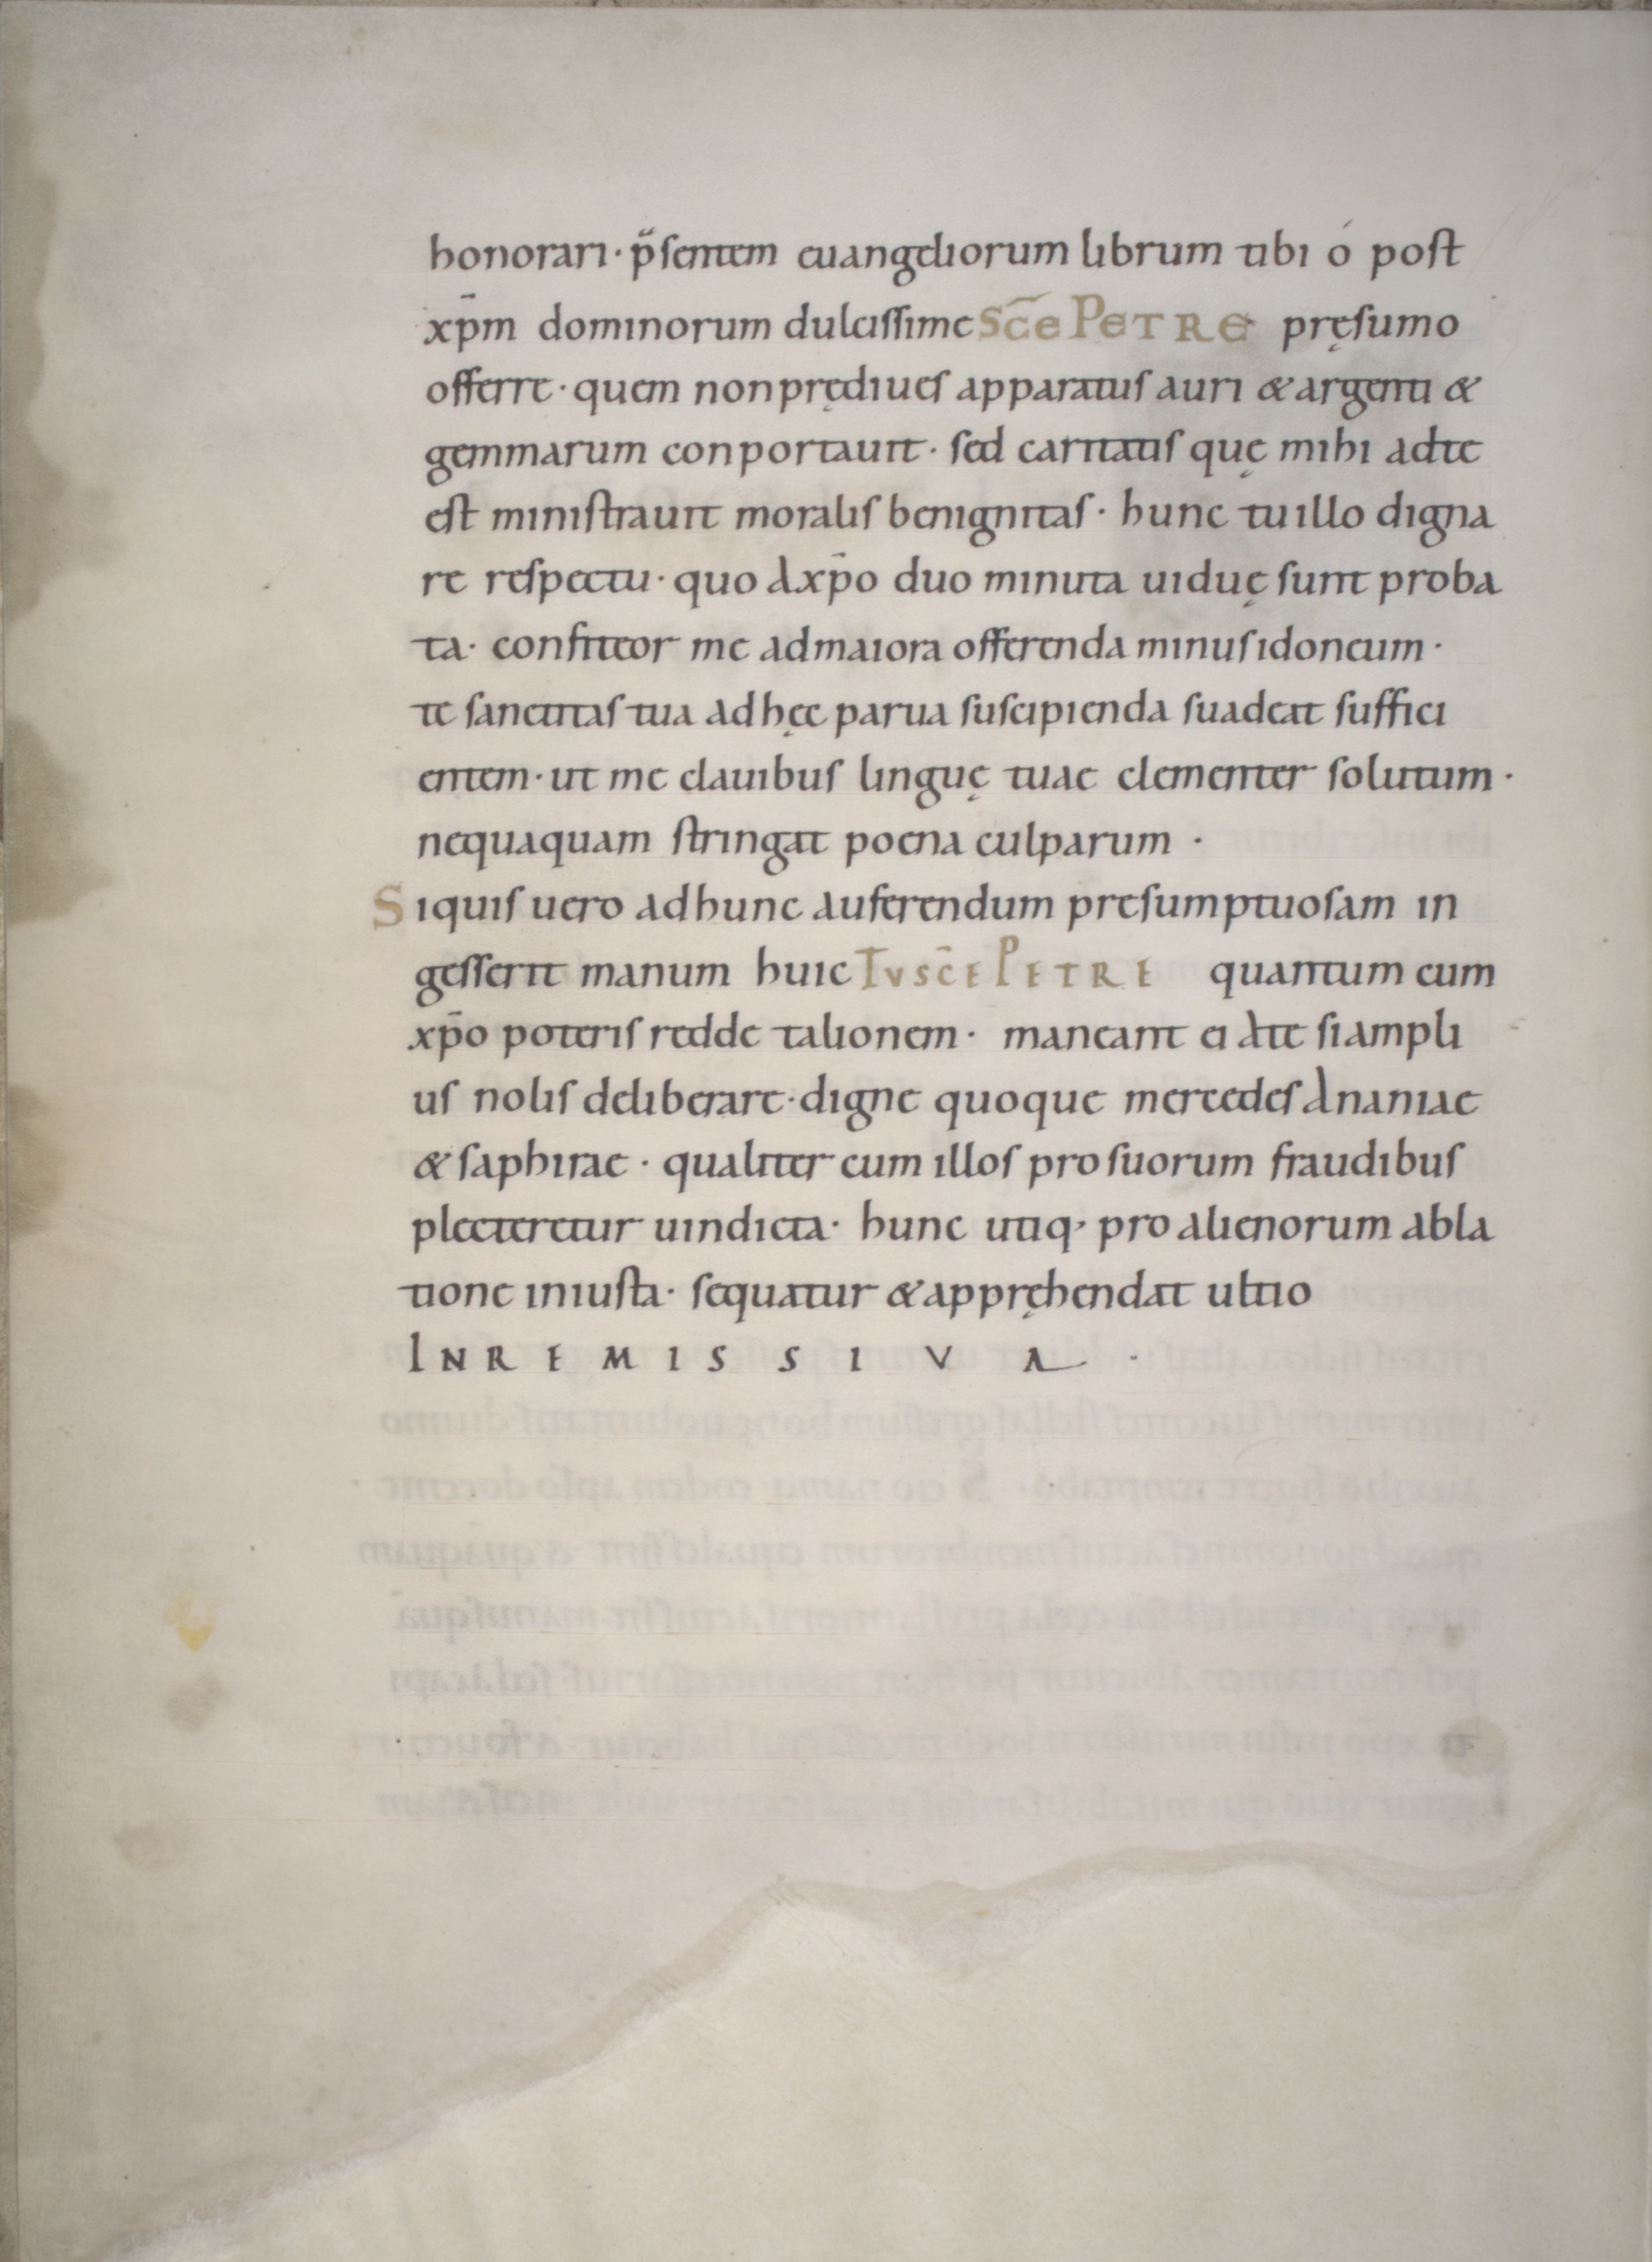 honorari· p̄sentem euangeliorum librum tibi ó post
xp̄m dominorum dulcissime SC̄E PETRE pręsumo
offerre· quem non prędiues apparatus auri & argenti &
gemmarum conportauit· sed caritatis quę mihi ad te
est ministrauit moralis benignitas· hunc tu illo digna
re respectu· quo a xp̄o duo minuta uiduę sunt proba
ta· confiteor me ad maiora offerenda minus idoneum·
te sanctitas tua ad hęc parua suscipienda suadeat suffici
entem· ut me clauibus linguę tuae clementer solutum·
nequaquam stringat poena culparum·
Siquis uero ad hunc auferendum presumptuosam in
gesserit manum huic TU SC̄E PETRE quantum cum
xp̄o poteris redde talionem· maneant ei a te si ampli
us nolis deliberare· digne quoque mercedes Ananiae
& saphirae· qualiter cum illos pro suorum fraudibus
plecteretur uindicta· hunc utiq· pro alienorum abla
tione iniusta· sequatur & appręhendat ultio
INREMISSIVA·